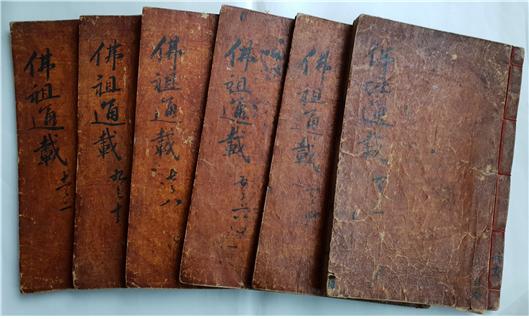 佛祖通載
佛祖通載 九之十
佛祖通載 七之八
佛祖通載 五之六
佛祖通載
佛祖通載